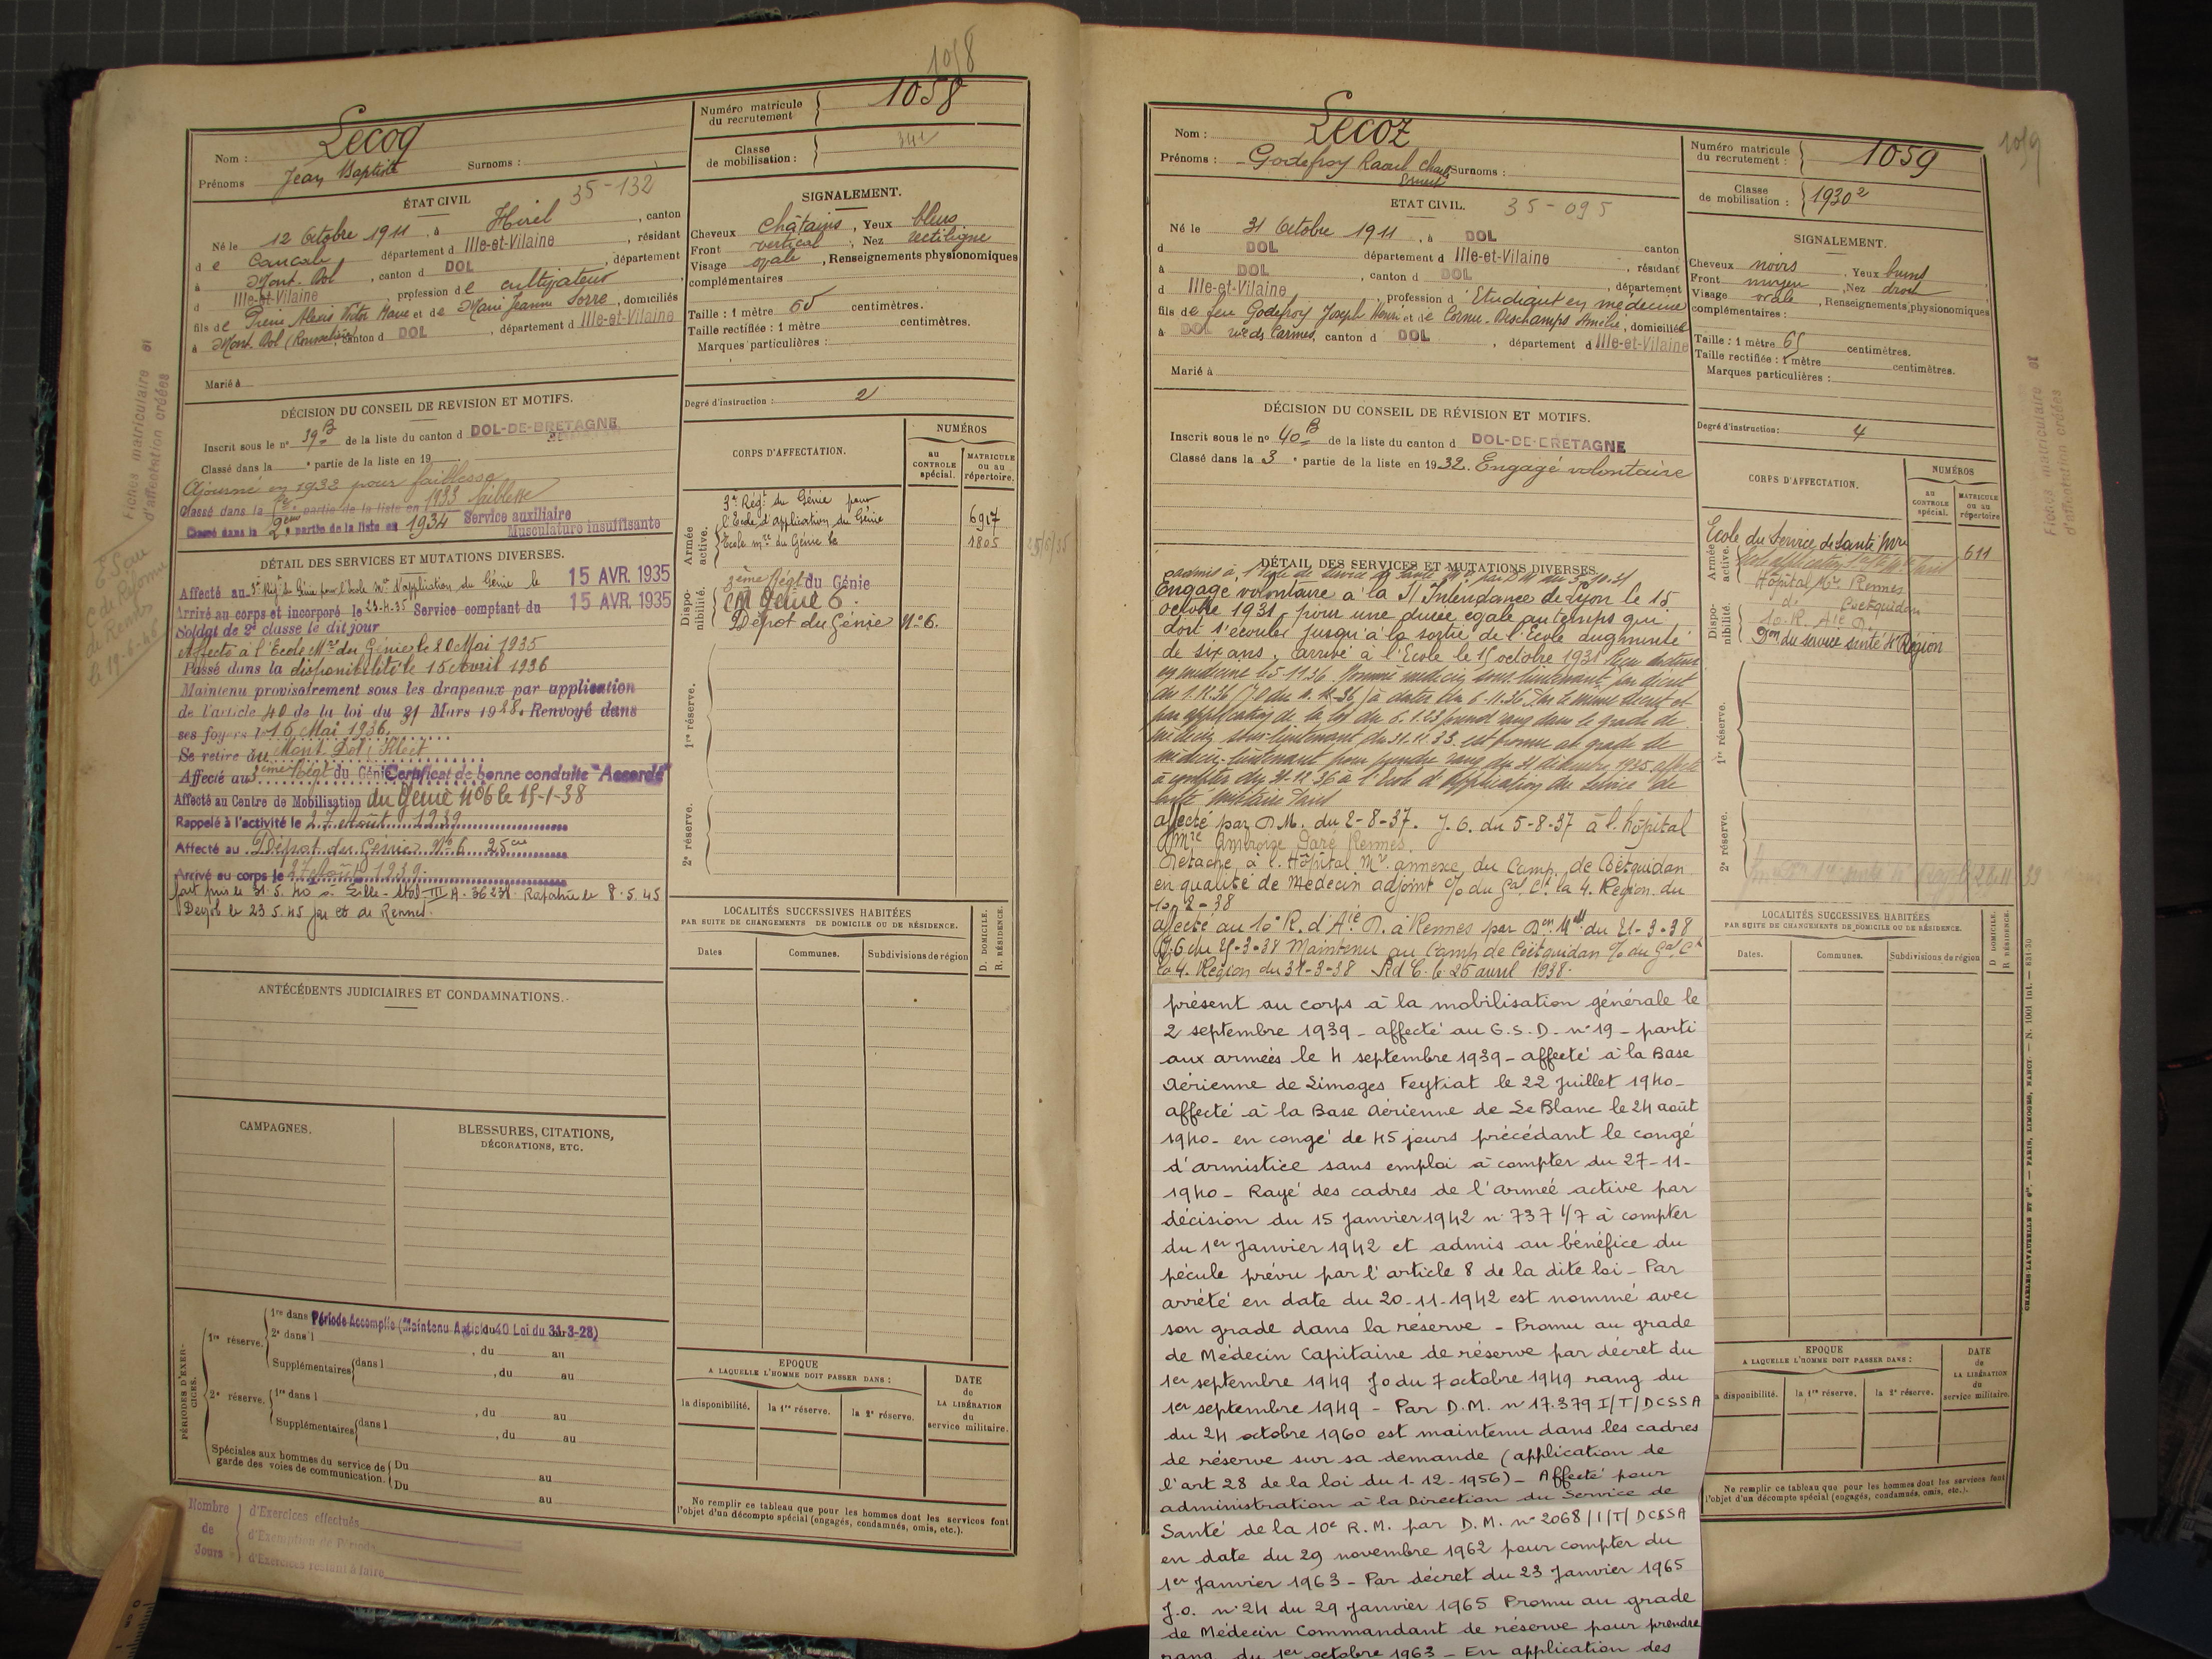 1058
Numéro matricule du recrutement 1058
Classe de mobilisation : 34
Nom : Lecoq
Prénoms Jean Baptiste Surnoms :
35-132
ÉTAT CIVIL
Né le 12 Octobre 1911, à Hirel, canton
de Cancale département d Ille-et-Vilaine, résidant
à Mont. Dol, canton d DOL, département
d Ille-et-Vilaine profession de cultivateur
fils de Pierre Alexis Victor Marie et de Marie Jeanne Sorre, domiciliés
à Mont. Dol canton d DOL, département d Ille-et-Vilaine
Marié à
SIGNALEMENT.
Cheveux Châtains, Yeux bleus
Front vertical, Nez rectiligne
Visage ovale, Renseignements physionomiques
complémentaires
Taille : 1 mètre 60 centimètres.
Taille rectifiée : 1 mètre centimètres.
Marques particulières :
Degré d'instruction : 2
DÉCISION DU CONSEIL DE REVISION ET MOTIFS.
Inscrit sous le n° 39 B de la liste du canton d DOL-DE-BRETAGNE
Classé dans la e partie de la liste en 19
Ajourné en 1932 pour faiblesse
Classé dans la partie de la liste en 1933 faiblesse
Classé dans la 2e partie de la liste en 1934 Service auxiliaire
Musculature insuffisante
DÉTAIL DES SERVICES ET MUTATIONS DIVERSES.
Affecté au 3e Régt du Génie pour l'Ecole Mre d'application du Génie le 15 AVR. 1935
Arrivé au corps et incorporé le 23.4.35 Service comptant du 15 AVR. 1935
Soldat de 2e classe le dit jour
Affecté à l'Ecole Mre du Génie le 20 Mai 1935
Passé dans la disponibilité le 15 Avril 1936
Maintenu provisoirement sous les drapeaux par application
de l'article 40 de la loi du 31 Mars 1928. Renvoyé dans
ses foyers le 15 Mai 1936
Se retire au Mont Dol
Affecté au 3ème Régt du Génie Certificat de bonne conduite "Accordé"
Affecté au Centre de Mobilisation du Génie N°6 le 15-1-38
Rappelé à l'activité le 27 Août 1939
Affecté au Dépôt du Génie N° 6 25 Cie
Arrivé au corps le 27 Août 1939
fait pris le 31.5.40 à Lille. Stal-III A. 36231. Rapatrié le 8.5.45
le 23.5.45 de Rennes.
Fiches matriculaire et d'affectation créées
C de Réforme
de Rennes
le 19-6-46
CORPS D'AFFECTATION.
NUMÉROS
au CONTROLE spécial.
MATRICULE ou au répertoire.
Armée active.
3e Régt du Génie pour
l'Ecole d'application du Génie 6917
Ecole Mre du Génie le 1805
Disponibilité.
3ème Régt du Génie
CM Génie 6.
Dépôt du Génie N° 6.
1re réserve.
2e réserve.
LOCALITÉS SUCCESSIVES HABITÉES
PAR SUITE DE CHANGEMENTS DE DOMICILE OU DE RÉSIDENCE.
Dates Communes. Subdivisions de région D. DOMICILE. R. RÉSIDENCE.
ANTÉCÉDENTS JUDICIAIRES ET CONDAMNATIONS.
CAMPAGNES.
BLESSURES, CITATIONS,
DÉCORATIONS, ETC.
PÉRIODES D'EXERCICES.
1re réserve. 1re dans Période Accomplie (Maintenu Article 40 Loi du 31-3-28)
2e dans l , du au
Supplémentaires dans l , du au
2e réserve. 1re dans l , du au
Supplémentaires dans l , du au
Spéciales aux hommes du service de garde des voies de communication. Du au
Du au
Nombre de Jours
d'Exercices effectués
d'Exemption de Période
d'Exercices restant à faire
EPOQUE
A LAQUELLE L'HOMME DOIT PASSER DANS :
la disponibilité. la 1re réserve. la 2e réserve.
DATE de LA LIBÉRATION du service militaire.
Ne remplir ce tableau que pour les hommes dont les services font
l'objet d'un décompte spécial (engagés, condamnés, omis, etc.).
1059
Nom : Lecoz
Prénoms : Godefroy Raoul Charles Ernest Surnoms :
Numéro matricule du recrutement : 1059
Classe de mobilisation : 1930²
ETAT CIVIL. 35-095
Né le 31 Octobre 1911, à DOL
d DOL canton
département d Ille-et-Vilaine, résidant
à DOL, canton d DOL, département
d Ille-et-Vilaine profession d'Etudiant en médecine
fils de feu Godefroy Joseph Henri et de Cornu-Deschamps Amélie, domiciliés
à DOL rue des Carmes, canton d DOL, département d Ille-et-Vilaine
Marié à
SIGNALEMENT.
Cheveux noirs, Yeux bruns
Front moyen, Nez droit
Visage ovale, Renseignements physionomiques
complémentaires :
Taille : 1 mètre 65 centimètres.
Taille rectifiée : 1 mètre centimètres.
Marques particulières :
Degré d'instruction : 4
DÉCISION DU CONSEIL DE RÉVISION ET MOTIFS.
Inscrit sous le n° 40 B de la liste du canton d DOL-DE-BRETAGNE
Classé dans la 3e partie de la liste en 1932. Engagé volontaire
DÉTAIL DES SERVICES ET MUTATIONS DIVERSES.
admis à l'Ecole de service de santé Mre par D.M. du 5-10-31
Engagé volontaire à la S/Intendance de Lyon le 15
octobre 1931 pour une durée égale au temps qui
doit s'écouler jusqu'à la sortie de l'Ecole augmenté
de six ans. Arrivé à l'Ecole le 15 octobre 1931 Reçu docteur
en médecine le 5-11-36. Nommé médecin sous-lieutenant par décret
du 1.12.36 (J.O du 4.12.36) à dater du 6.11.36 Par le même décret et
par application de la loi du 6.1.23 prend rang dans le grade de
médecin sous-lieutenant du 31.12.33 est promu au grade de
médecin-lieutenant pour prendre rang du 31 décembre 1935 affecté
à compter du 31.12.36 à l'Ecole d'Application du Service de
Santé Militaire
affecté par D.M. du 2-8-37. J.O. du 5-8-37 à l'hôpital
Mre Ambroise Paré Rennes.
Détaché à l'Hôpital Mre annexe du Camp de Coëtquidan
en qualité de Médecin adjoint o/ du Gal Ct la 4. Région du
10-2-38
affecté au 10e R. d'Aie D. à Rennes par Don Mlle du 21-3-38
J.O du 25-3-38 Maintenu au Camp de Coëtquidan o/ du Gal Ct
la 4. Région du 31-3-38 R d C. le 25 avril 1938.
présent au corps à la mobilisation générale le
2 septembre 1939 - affecté au G.S.D. n° 19 - parti
aux armées le 4 septembre 1939 - affecté à la Base
Aérienne de Limoges Feytiat le 22 juillet 1940 -
affecté à la Base Aérienne de Le Blanc le 24 août
1940 - en congé de 45 jours précédant le congé
d'armistice sans emploi à compter du 27-11-
1940 - Rayé des cadres de l'armée active par
décision du 15 Janvier 1942 n° 737 1/7 à compter
du 1er Janvier 1942 et admis au bénéfice du
pécule prévu par l'article 8 de la dite loi - Par
arrêté en date du 20-11-1942 est nommé avec
son grade dans la réserve - Promu au grade
de Médecin Capitaine de réserve par décret du
1er septembre 1949 Jo du 7 octobre 1949 rang du
1er septembre 1949 - Par D.M. n° 17.379 I/T/DCSSA
du 24 octobre 1960 est maintenu dans les cadres
de réserve sur sa demande (application de
l'art 28 de la loi du 1-12-1956) - Affecté pour
administration à la Direction du Service de
Santé de la 10e R.M. par D.M. n° 2068/I/T/DCSSA
en date du 29 novembre 1962 pour compter du
1er Janvier 1963 - Par décret du 23 Janvier 1965
J.O. n° 24 du 29 Janvier 1965 Promu au grade
de Médecin Commandant de réserve pour prendre
rang du 1er octobre 1963 - En application des
CORPS D'AFFECTATION.
NUMÉROS
au CONTROLE spécial.
MATRICULE ou au répertoire
Armée active.
Ecole du Service de Santé Mre 611
Hôpital Mre Rennes
d° Coëtquidan
10. R. Aie D.
Disponibilité.
Don du service santé 4e Région
1re réserve.
2e réserve.
LOCALITÉS SUCCESSIVES HABITÉES
PAR SUITE DE CHANGEMENTS DE DOMICILE OU DE RÉSIDENCE.
Dates. Communes. Subdivisions de région D. DOMICILE R. RÉSIDENCE.
EPOQUE
A LAQUELLE L'HOMME DOIT PASSER DANS :
la disponibilité. la 1re réserve. la 2e réserve.
DATE de LA LIBÉRATION du service militaire.
Ne remplir ce tableau que pour les hommes dont les services font
l'objet d'un décompte spécial (engagés, condamnés, omis, etc.).
Fiches matriculaire et d'affectation créées
CHARLES-LAVAUZELLE ET Cie. — PARIS, LIMOGES, NANCY. — N. 1001 int. — 831-30